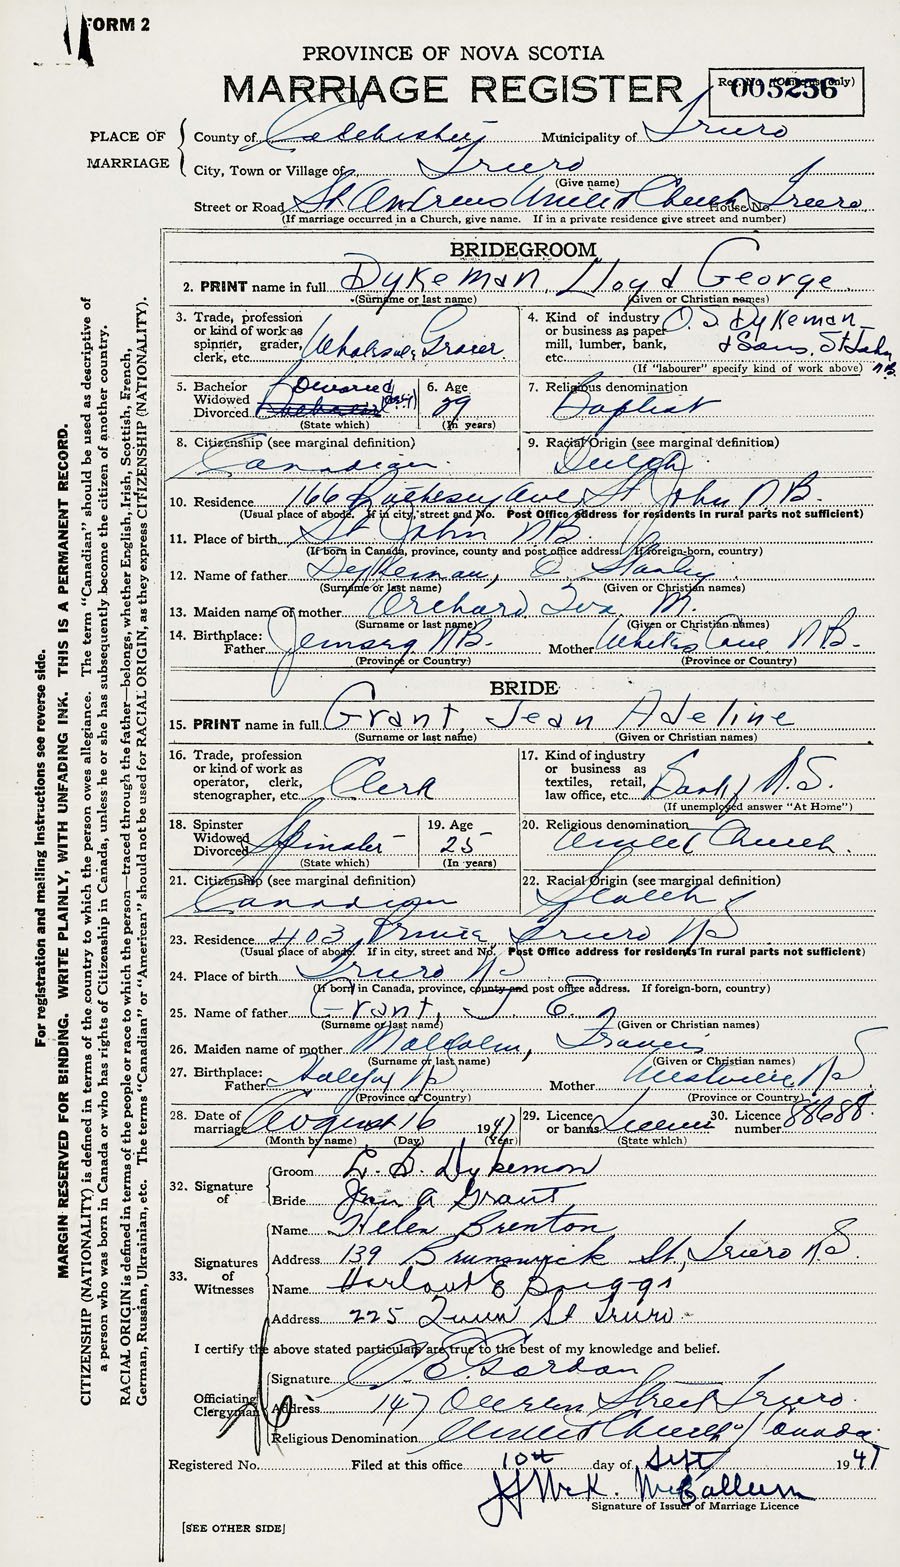 FORM 2
PROVINCE OF NOVA SCOTIA
MARRIAGE REGISTER
Reg. No. (Office use only)
005256
PLACE OF MARRIAGE
County of Colchester Municipality of Truro
City, Town or Village of Truro
(Give name)
Street or Road St Andrews United Church House No. Truro
(If marriage occurred in a Church, give name. If in a private residence give street and number)
BRIDEGROOM
2. PRINT name in full Dykeman, Lloyd George
(Surname or last name) (Given or Christian names)
3. Trade, profession or kind of work as spinner, grader, clerk, etc. Wholesale Grocer
4. Kind of industry or business as paper mill, lumber, bank, etc. O. S. Dykeman & Sons, St John N.B.
(If "labourer" specify kind of work above)
5. Bachelor Widowed Divorced Divorced
(State which)
6. Age 29
(In years)
7. Religious denomination Baptist
8. Citizenship (see marginal definition) Canadian
9. Racial Origin (see marginal definition) Dutch
10. Residence 166 Rothesay Ave St John N.B.
(Usual place of abode. If in city, street and No. Post Office address for residents in rural parts not sufficient)
11. Place of birth St John N.B.
(If born in Canada, province, county and post office address. If foreign-born, country)
12. Name of father Dykeman, O. Stanley
(Surname or last name) (Given or Christian names)
13. Maiden name of mother Orchard, Iva M.
(Surname or last name) (Given or Christian names)
14. Birthplace: Father Jemseg N.B. Mother Whites Cove N.B.
(Province or Country) (Province or Country)
BRIDE
15. PRINT name in full Grant, Jean Adeline
(Surname or last name) (Given or Christian names)
16. Trade, profession or kind of work as operator, clerk, stenographer, etc. Clerk
17. Kind of industry or business as textiles, retail, law office, etc. Bank of N.S.
(If unemployed answer "At Home")
18. Spinster Widowed Divorced Spinster
(State which)
19. Age 25
(In years)
20. Religious denomination United Church
21. Citizenship (see marginal definition) Canadian
22. Racial Origin (see marginal definition) Scotch
23. Residence 403 Prince Truro NS
(Usual place of abode. If in city, street and No. Post Office address for residents in rural parts not sufficient)
24. Place of birth Truro NS
(If born in Canada, province, county and post office address. If foreign-born, country)
25. Name of father Grant, J. E.
(Surname or last name) (Given or Christian names)
26. Maiden name of mother Malcolm, Francis
(Surname or last name) (Given or Christian names)
27. Birthplace: Father Halifax NS Mother Westville NS
(Province or Country) (Province or Country)
28. Date of marriage August 16 1947
(Month by name) (Day) (Year)
29. Licence or banns License
(State which)
30. Licence number 88688
32. Signature of
Groom L. G. Dykeman
Bride Jean A Grant
33. Signatures of Witnesses
Name Helen Brenton
Address 139 Brunswick St, Truro N.S.
Name Harland E Boggs
Address 225 Queen St Truro
I certify the above stated particulars are true to the best of my knowledge and belief.
Officiating Clergyman
Signature Gordon
Address 147 Queen Street Truro
Religious Denomination United Church of Canada
Registered No. Filed at this office 10th day of Sept 1947
McCallum
Signature of Issuer of Marriage Licence
[SEE OTHER SIDE]
For registration and mailing instructions see reverse side.
MARGIN RESERVED FOR BINDING. WRITE PLAINLY, WITH UNFADING INK. THIS IS A PERMANENT RECORD.
CITIZENSHIP (NATIONALITY) is defined in terms of the country to which the person owes allegiance. The term "Canadian" should be used as descriptive of
a person who was born in Canada or who has rights of Citizenship in Canada, unless he or she has subsequently become the citizen of another country.
RACIAL ORIGIN is defined in terms of the people or race to which the person—traced through the father—belongs, whether English, Irish, Scottish, French,
German, Russian, Ukrainian, etc. The terms "Canadian" or "American" should not be used for RACIAL ORIGIN, as they express CITIZENSHIP (NATIONALITY).